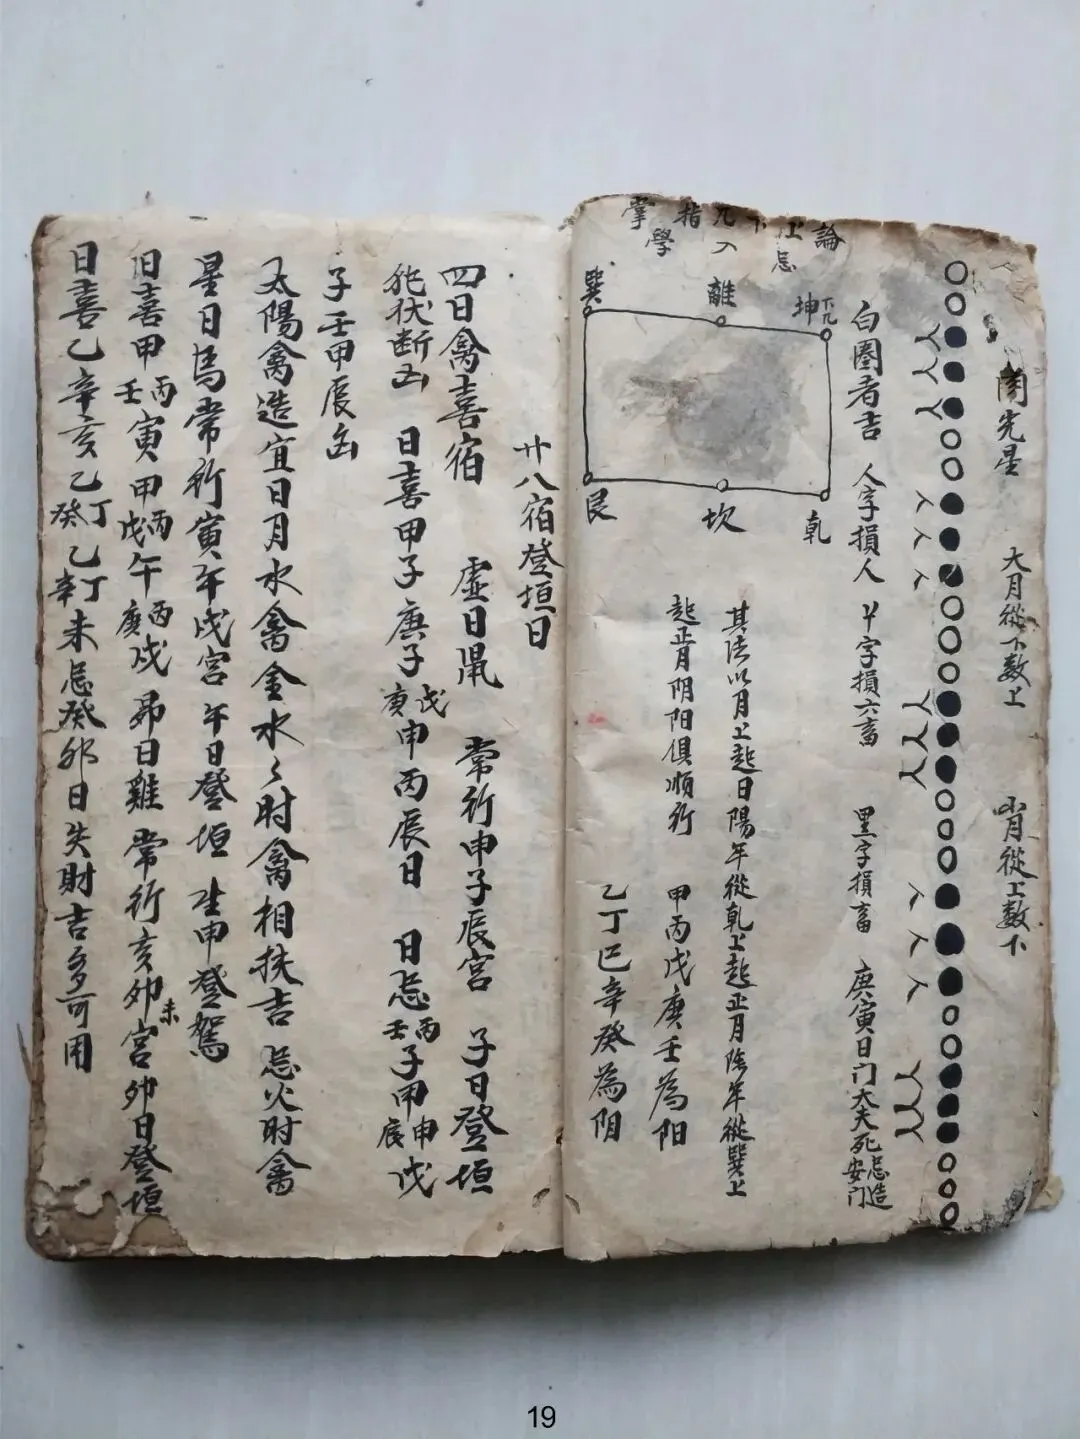 大月從下数上
小月從上数下
白圈者吉 人字損人 丫字損六畜 黑字損畜 庚寅日门大夫死忌造安门
論
忌
入學
指掌
巽 離 坤
艮 坎 乾
其法以月上起日陽年從乾上起正月陰年從巽上
起正月阴阳俱順行 甲丙戊庚壬為阳
乙丁巳辛癸為阴
廿八宿登垣日
四日禽喜宿 虚日鼠 常行申子辰宮 子日登垣
伏断凶 日喜甲子庚子戊庚申丙辰日 日忌丙壬子甲申辰戊
子壬甲辰凶
太陽禽造宜日月水禽金水〻时禽相扶吉 忌火时禽
星日馬常行寅午戌宮 午日登垣 生申登駕
日喜甲丙壬寅甲丙戊午丙庚戌 昴日雞 常行亥卯未宮 卯日登垣
日喜乙辛亥乙丁癸乙丁辛未忌癸卯日失財吉多可用
19